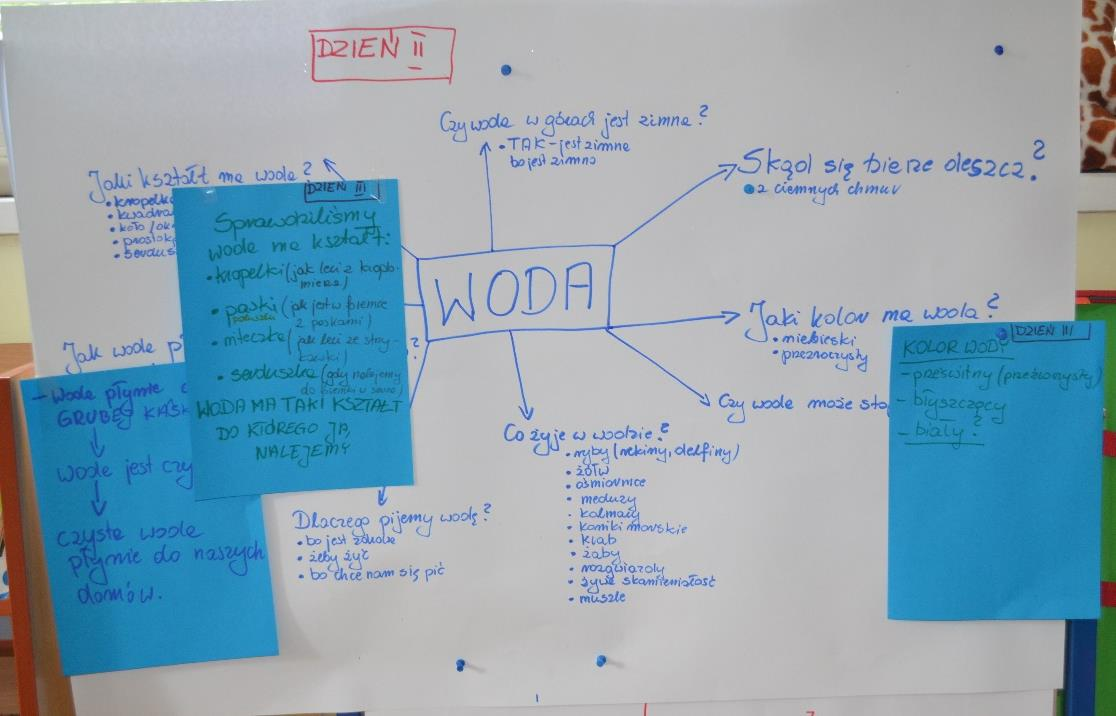 DZIEŃ II
Czy woda w górach jest zimna?
• TAK - jest zimna
bo jest zimno
Skąd się bierze deszcz?
• z ciemnych chmur
Jaki kształt ma woda?
• kropelk
• kwadra
• koło / ok
• prostok
• serdus
DZIEŃ III
Sprawdziliśmy
woda ma kształt:
• kropelki (jak leci z kroplo-
mierza)
• paski (jak jest w
z paskami)
(jak leci ze strzy-
kawki)
• serduszka (gdy nalejemy
do
WODA MA TAKI KSZTAŁT
DO KTÓREGO JĄ
NALEJEMY
WODA
Jaki kolor ma woda?
• niebieski
• przezroczysty
DZIEŃ III
KOLOR WODY
- prześwitny (przeźroczysty)
- błyszczący
- biały?
Czy woda może sto
Jak woda p
?
- Woda płynie
GRUBEJ
woda jest czy
czysta woda
płynie do naszych
domów.
Co żyje w wodzie?
• ryby (rekiny, delfiny)
• żółw
• ośmiornice
• meduzy
• kalmary
• koniki morskie
• krab
• żaby
• rozgwiazdy
• żywe skamieniałość
• muszle
Dlaczego pijemy wodę?
• bo jest zdrowa
• żeby żyć
• bo chce nam się pić